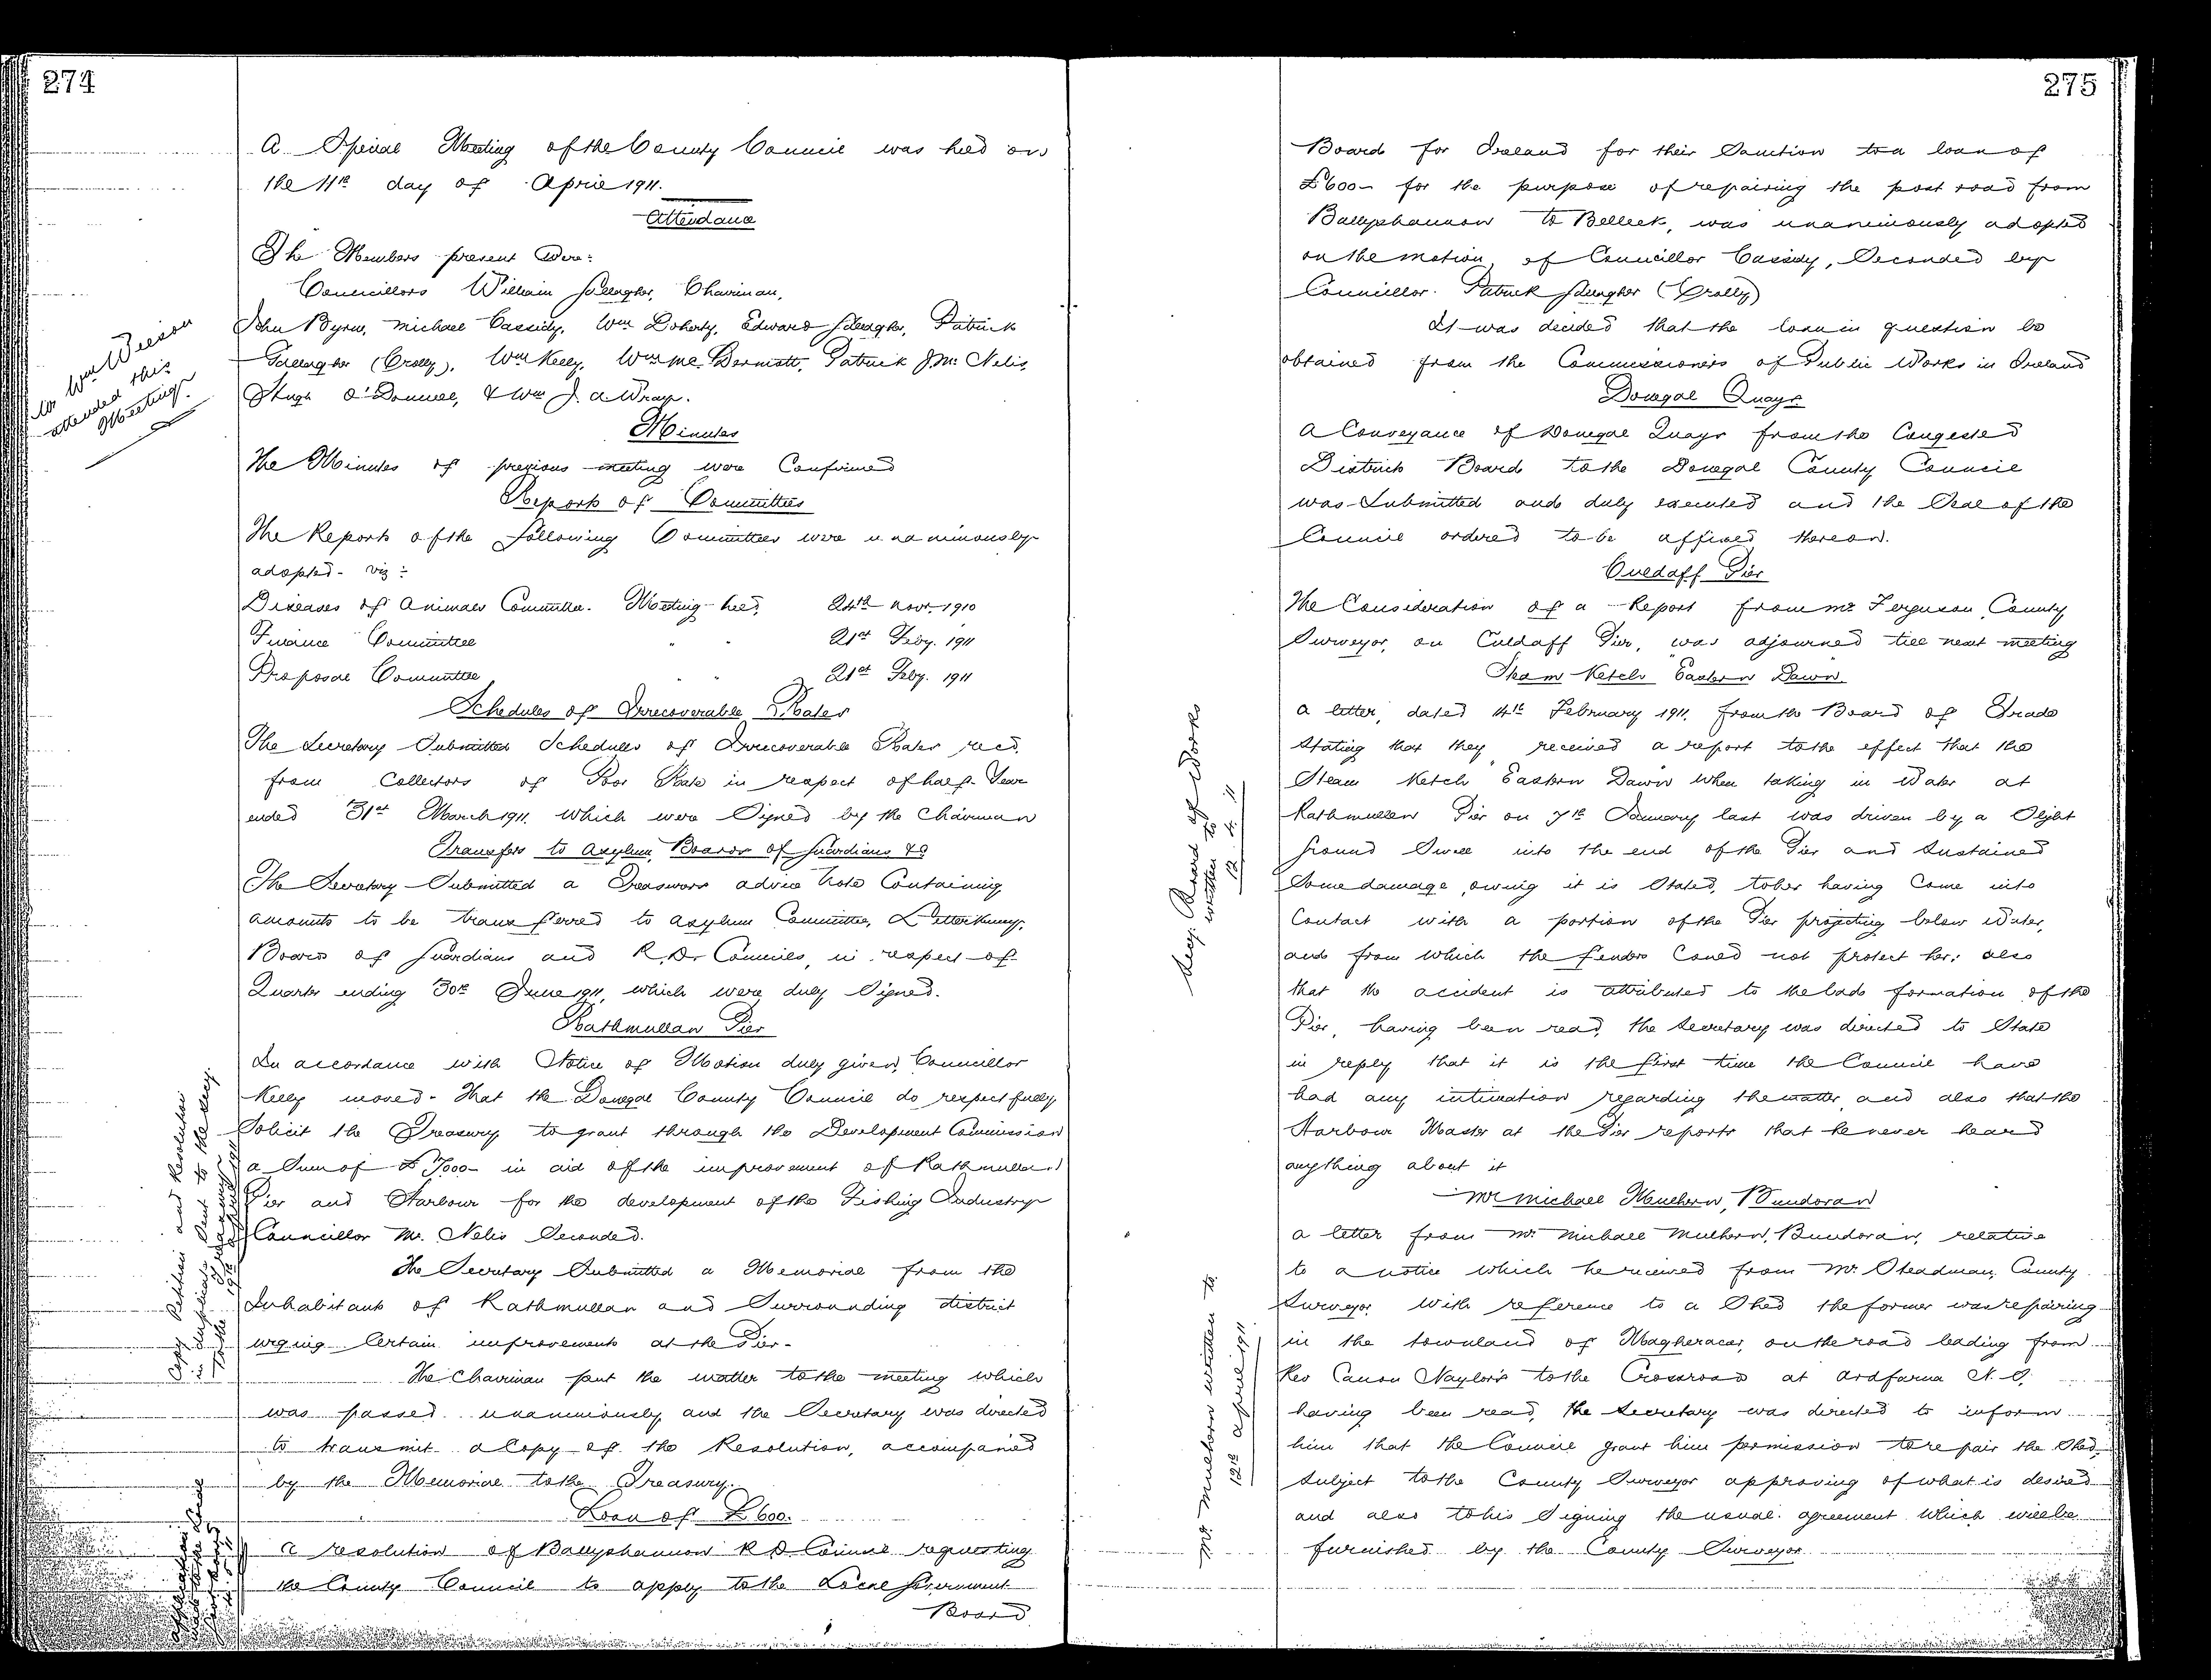 274
A Special Meeting of the County Council was held on
the 11th day of April 1911.
Attendance
The Members present were:
Councillors William Gallagher, Chairman,
John Byrne, Michael Cassidy, Wm Doherty, Edward Gallagher, Patrick
Gallagher (Crolly), Wm Kelly, Wm McDermott, Patrick J. Mc Nelis,
Hugh O'Donnell, & Wm J. A. Wray.
Mr Wm Wilson
attended this
Meeting.
Minutes
The Minutes of previous meeting were Confirmed
Reports of Committees
The Reports of the following Committees were unanimously
adopted - viz:
Diseases of Animals Committee. Meeting held, 24th Novr. 1910
Finance Committee " " 21st Feby. 1911
Proposal Committee " " 21st Feby. 1911
Schedules of Irrecoverable Rates
The Secretary Submitted Schedules of Irrecoverable Rates recd.
from Collectors of Poor Rate in respect of half-Year
ended 31st March 1911, which were Signed by the Chairman
Transfers to Asylum, Boards of Guardians &c
The Secretary Submitted a Treasurers advice Note Containing
amounts to be transferred to Asylum Committee, Letterkenny,
Boards of Guardians and R. D. Councils, in respect of
Quarter ending 30th June 1911, which were duly Signed.
Rathmullan Pier
In accordance with Notice of Motion duly given, Councillor
Kelly moved - That the Donegal County Council do respectfully
Solicit the Treasury to grant through the Development Commission
a Sum of £7000 - in aid of the improvement of Rathmullan
Pier and Harbour for the development of the Fishing Industry
Councillor Mc. Nelis Seconded.
The Secretary Submitted a Memorial from the
Inhabitants of Rathmullan and Surrounding district
urging Certain improvements at the Pier.
The Chairman put the matter to the meeting which
was passed unanimously and the Secretary was directed
to transmit a Copy of the Resolution, accompanied
by the Memorial to the Treasury.
Copy Petition and Resolution
in duplicate sent to the Secy.
to the Treasury
Loan of £600.
A resolution of Ballyshannon R D Council requesting
the County Council to apply to the Local Government
Board
275
Board for Ireland for their Sanction to a loan of
£600 - for the purpose of repairing the post road from
Ballyshannon to Belleek, was unanimously adopted
on the motion of Councillor Cassidy, Seconded by
Councillor Patrick Gallagher (Crolly)
It was decided that the loan in question be
obtained from the Commissioners of Public Works in Ireland
Donegal Quays
A Conveyance of Donegal Quays from the Congested
Districts Board to the Donegal County Council
was Submitted and duly executed and the Seal of the
Council ordered to be affixed thereon.
Culdaff Pier
The Consideration of a Report from Mr Ferguson, County
Surveyor, on Culdaff Pier, was adjourned till next meeting
Steam Ketch Eastern Dawn
A letter, dated 14th February 1911, from the Board of Trade
Stating that they received a report to the effect that the
Steam Ketch Eastern Dawn when taking in Water at
Rathmullan Pier on 7th January last was driven by a Slight
Ground Swell into the end of the Pier and Sustained
Some damage, owing it is Stated, to her having Come into
Contact with a portion of the Pier projecting below Water,
and from which the fenders Could not protect her; also
that the accident is attributed to the bad formation of the
Pier, having been read, the Secretary was directed to State
in reply that it is the first time the Council have
had any intimation regarding the matter and also that the
Harbour Master at the Pier reports that he never heard
anything about it
Secy. Board of Works
written to
12. 4. 11
Mr Michael Mulhern, Bundoran
A letter from Mr Michael Mulhern, Bundoran, relative
to a notice which he received from Mr Steadman, County
Surveyor, With reference to a Shed the former was repairing
in the townland of Magheracar, on the road leading from
Rev Canon Naylor's to the Crossroad at Ardfarna N. S.
having been read, the Secretary was directed to inform
him that the Council grant him permission to repair the Shed
Subject to the County Surveyor approving of what is desired
and also to his Signing the usual agreement which will be
furnished by the County Surveyor
Mr. Mulhern written to
12th April 1911